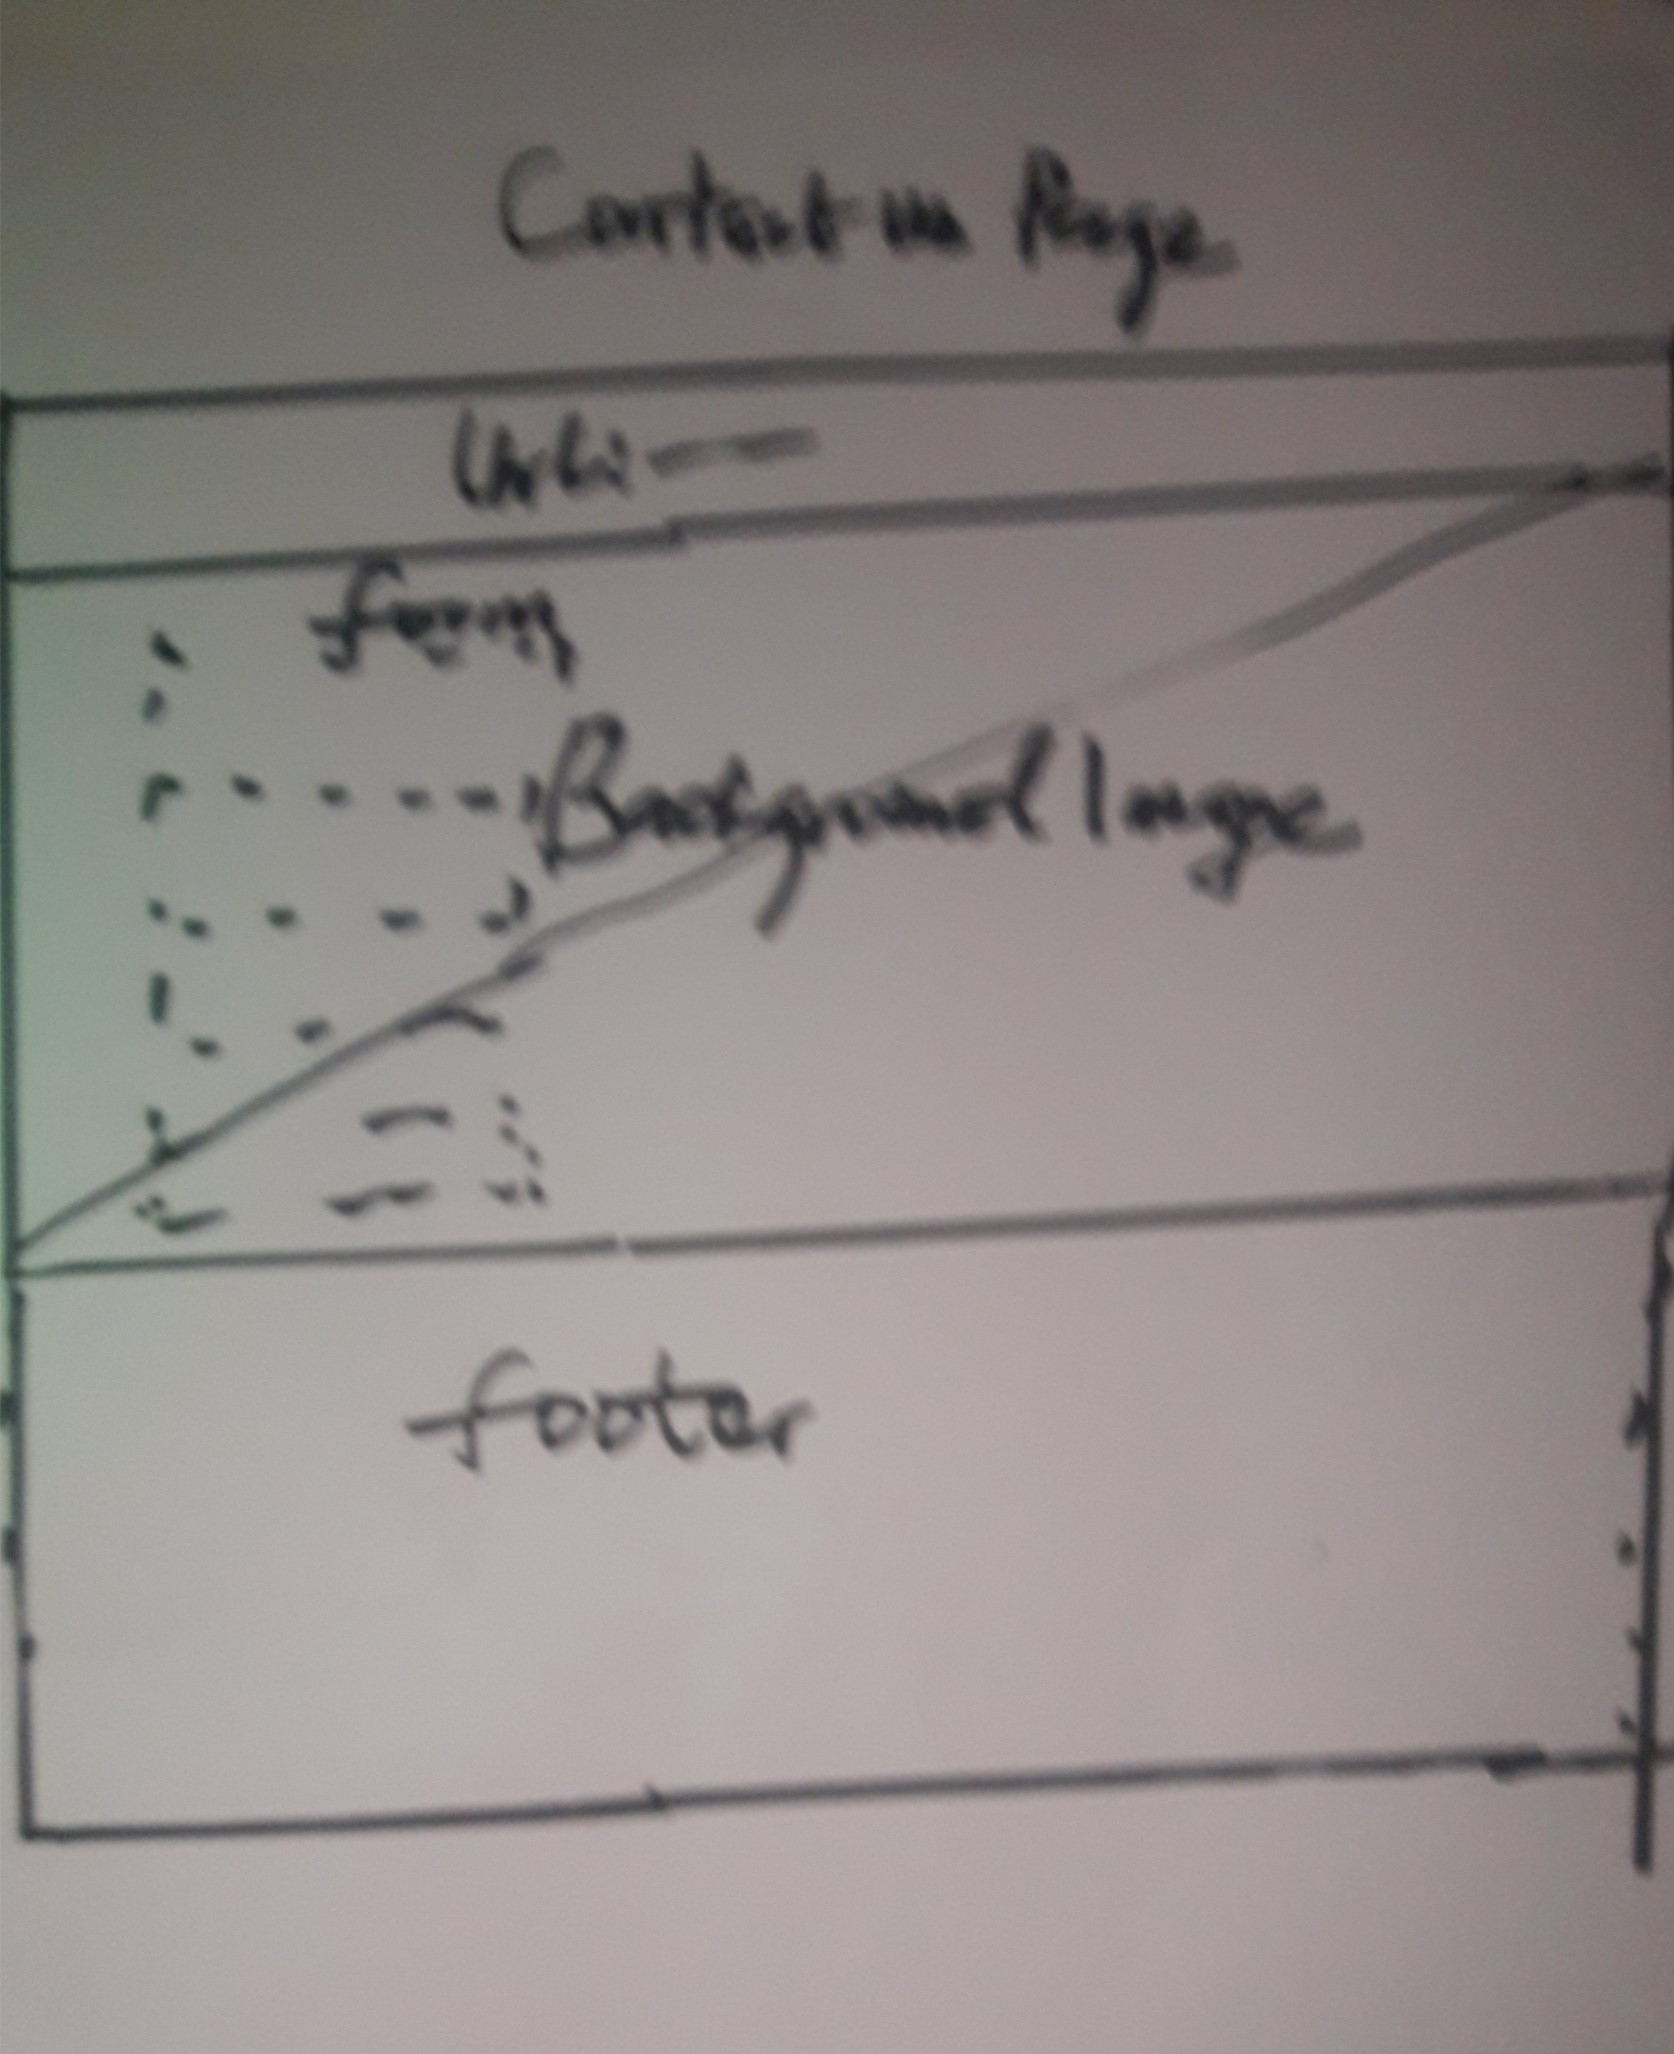 Contact us Page
form
Background Image
footer